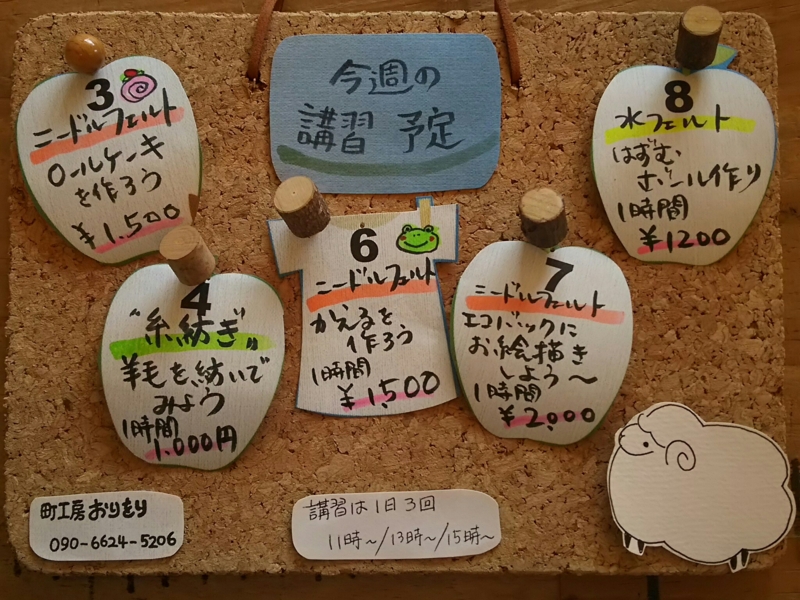 今週の
講習 予定
3
ニードルフェルト
ロールケーキ
を作ろう
¥1.500
4
"糸紡ぎ"
羊毛を紡いで
みよう
1時間
1.000円
6
ニードルフェルト
かえるを
作ろう
1時間
¥1,500
7
ニードルフェルト
エコバックに
お絵描き
しよう〜
1時間
¥2.000
8
水フェルト
はずむ
ボール作り
1時間
¥1200
町工房おりをり
090-6624-5206
講習は1日3回
11時〜/13時〜/15時〜